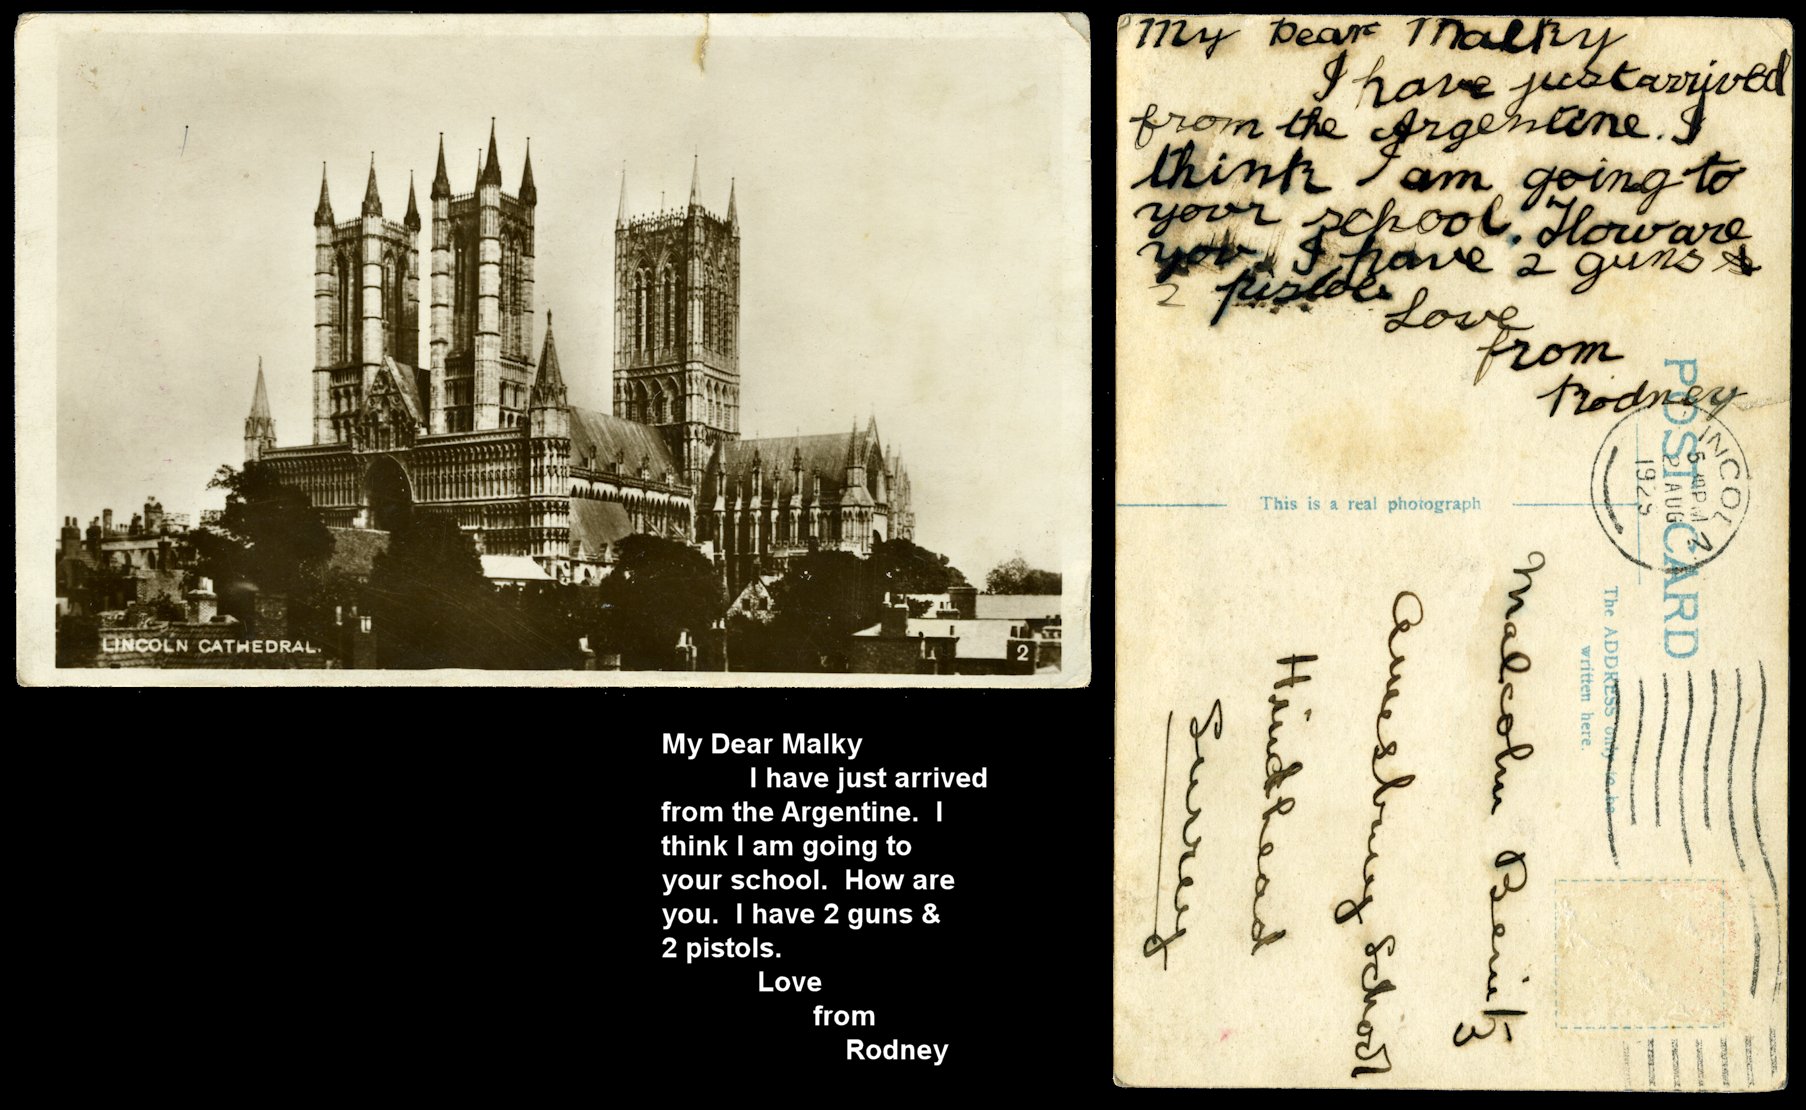 LINCOLN CATHEDRAL.
2
My Dear Malky
I have just arrived
from the Argentine. I
think I am going to
your school. How are
you. I have 2 guns &
2 pistols.
Love
from
Rodney
My Dear Malky
I have just arrived
from the Argentine. I
think I am going to
your school. How are
you. I have 2 guns &
2 pistols.
Love
from
Rodney
This is a real photograph
POST CARD
The ADDRESS only to be
written here.
LINCOLN
2 AUG
1929
Malcolm
Amesbury School
Hindhead
Surrey